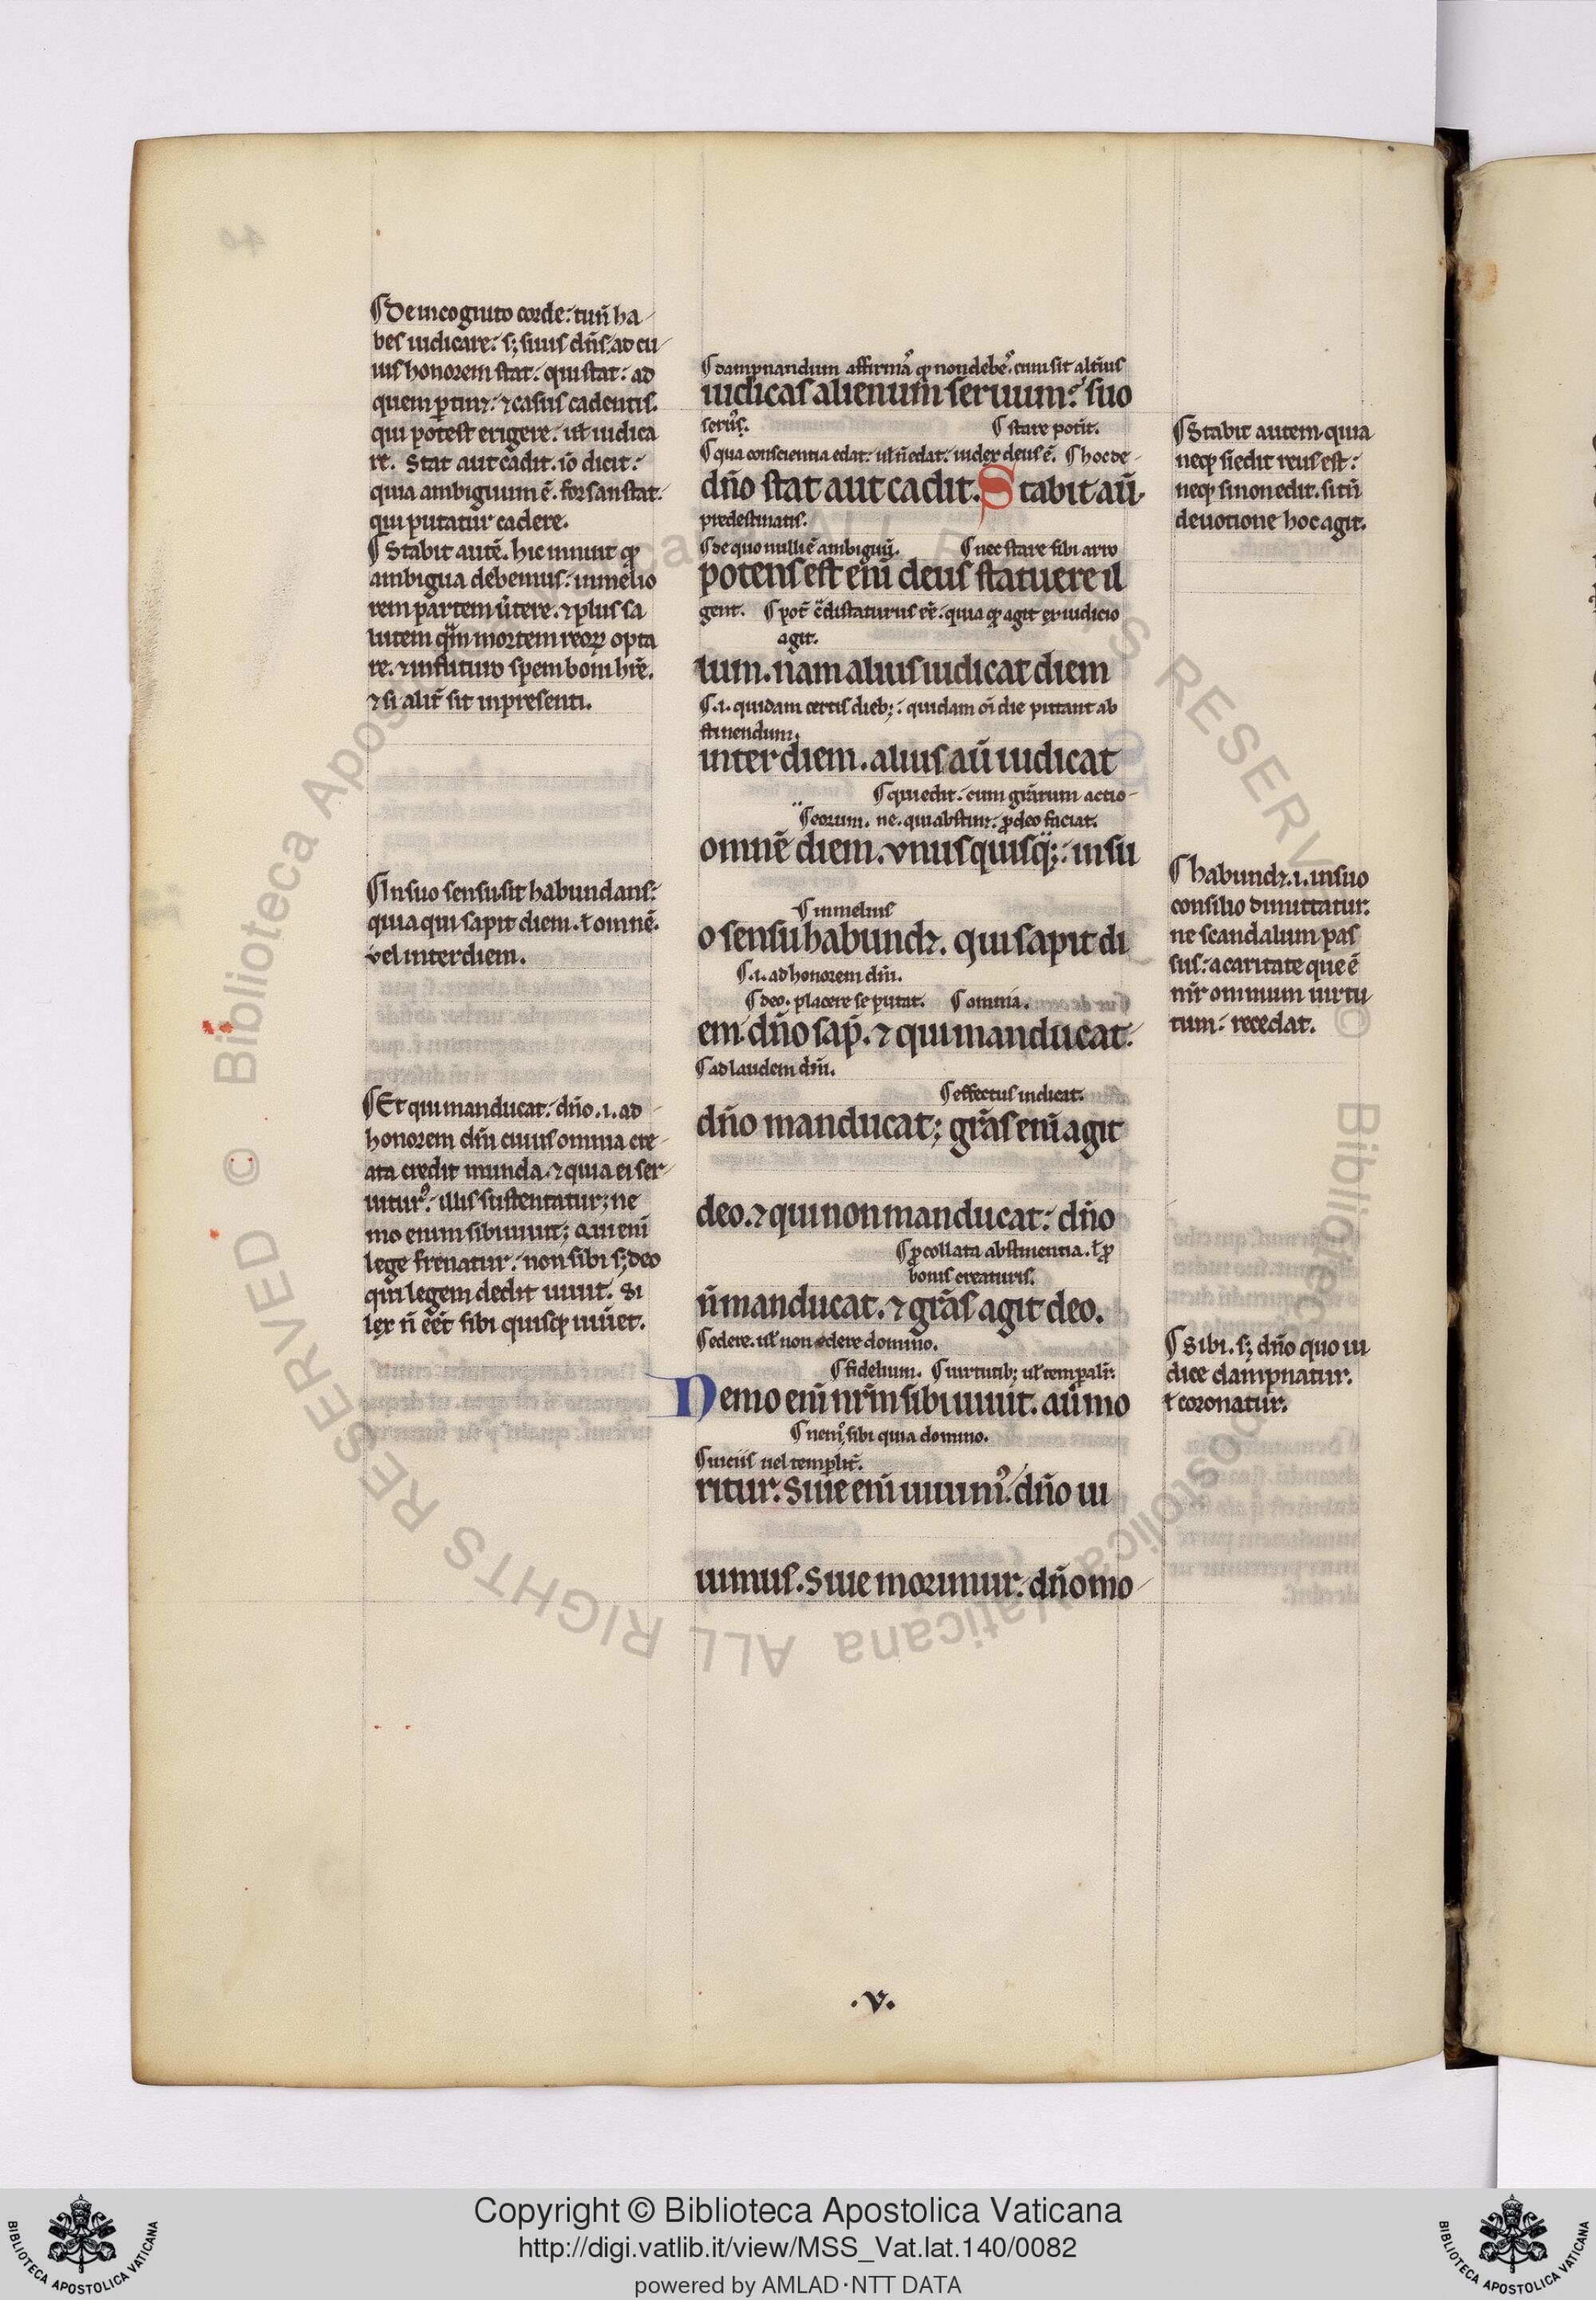 ¶De incognito corde: tu n̄ ha-
bes iudicare: s; suus dn̄s. ad cu-
ius honorem stat: qui stat: ad
quem ptinꝫ: ⁊ casus cadentis.
qui potest erigere. ul̃ iudica
re. Stat aut cadit. iō dicit:
quia ambiguum ē. forsan stat.
qui putatur cadere.
¶Stabit autē. hic innuit qɔ
ambigua debemus: in melio
rem partem ūtere. ⁊ plus sa
lutem qᵃm mortem reoꝝ opta
re. ⁊ in futuro spem boni hr̄e.
⁊ si alit̃ sit in presenti.
¶In suo sensu sit habundans:
quia qui sapit diem. ł omnē.
vel inter diem.
¶Et qui manducat: dn̄o .i. ad
honorem dn̄i cuius omnia cre-
ata credit munda. ⁊ quia ei ser-
uitur: illis sustentatur; ne
mo enim sibi uiuit; Qui enī
lege frenatur: non sibi s; deo
qui legem dedit uiuit. Si
lex n̄ eēt sibi quisqɜ uiu̅et.
¶dampnandum affirmaᷣ qɔ non debeᷣ. cum sit alt̃ius
iudicas alienum seruum: suo
seruꝰ. ¶stare potit.
¶qua conscientia edat: ul̃ n̄ edat: iudex deus ē. ¶hoc de-
dn̄o stat aut cadit. Stabit aū.
predestinatis.
¶de quo nulli ē ambiguū. ¶nec stare sibi arro
potens est enī deus statuere il
gent. ¶pot̃ c̄dı staturus eē. quia qɔ agit ex iudicio
agit.
lum. nam alius iudicat diem
¶.i. quidam certis dieb;: quidam oı̅ die putant ab
stinendum.
inter diem. alius aū iudicat
¶qui edit: cum grārum actio-
¶eorum. ne. qui abstinꝫ. p̱ deo faciat.
omnē diem. vnusquisq;: in su
¶in melius
o sensu habundꝫ. qui sapit di
¶.i. ad honorem dn̄i.
¶deo. placere se putat. ¶omnia.
em. dn̄o sap̄. ⁊ qui manducat:
¶ad laudem dn̄i.
¶effectus indicat.
dn̄o manducat; grās enī agit
deo. ⁊ qui non manducat: dn̄o
¶p̱ collata abstinentia. ł p̱
bonis creaturis.
n̄ manducat. ⁊ grās agit deo.
¶edere. ul̃ non edere domino.
¶fidelium. ¶uirtutib; ul̃ temp̱alit̃.
Nemo enī nr̄m sibi uiuit. aūͦ mo
¶nemͦ sibi quia domino.
¶uiciis uel temp̱lit̃.
ritur. Siue enī uiuimꝰ: dn̄o ui
uimus. Siue morimur: dn̄o mo-
¶Stabit autem. quia
neqɜ si edit reus est:
neqɜ si non edit. si tn̄
deuotione hoc agit.
¶habundꝫ .i. in suo
consilio dimittatur.
ne scandalum pas
sus: a caritate que ē
mr̄ omnium uirtu
tum: recedat.
¶Sibi. s; dn̄o quo iu
dice dampnatur.
ł coronatur.
.v.
© Biblioteca Apostolica Vaticana ALL RIGHTS RESERVED
© Biblioteca Apostolica Vaticana ALL RIGHTS RESERVED
Copyright © Biblioteca Apostolica Vaticana
http://digi.vatlib.it/view/MSS_Vat.lat.140/0082
powered by AMLAD·NTT DATA
BIBLIOTECA APOSTOLICA VATICANA
BIBLIOTECA APOSTOLICA VATICANA